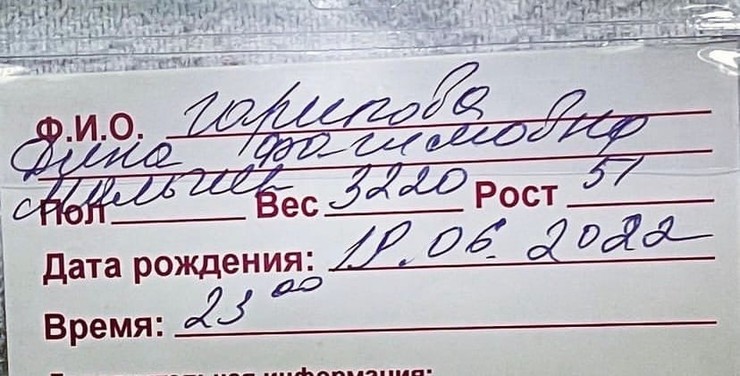 Ф.И.О. Гарипова
Дина Фагимовна
мальчик
Пол Вес 3220 Рост 51
Дата рождения: 18.06.2022
Время: 23 00
информация: